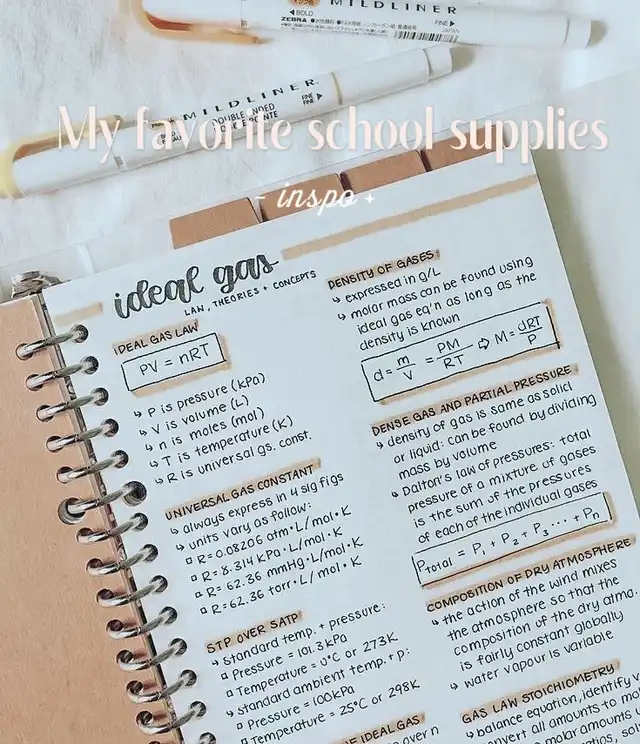 MILDLINER
BOLD
FINE
ZEBRA
JAPAN
MILDLINER
DOUBLE ENDED
FINE
My favorite school supplies
- inspo +
ideal gas
LAW, THEORIES + CONCEPTS
IDEAL GAS LAW
PV = nRT
↳ P is pressure (kPa)
↳ V is volume (L)
↳ n is moles (mol)
↳ T is temperature (K)
↳ R is universal gs. const.
UNIVERSAL GAS CONSTANT
↳ always express in 4 sig figs
↳ units vary as follow:
▫ R= 0.08206 atm・L/mol・K
▫ R= 8.314 kPa・L/mol・K
▫ R= 62.36 mmHg・L/mol・K
▫ R= 62.36 torr・L/mol・K
STP OVER SATP
↳ standard temp. + pressure:
▫ Pressure = 101.3 kPa
▫ Temperature = 0°C or 273K
↳ standard ambient temp. + P:
▫ Pressure = 100kPa
▫ Temperature = 25°C or 298K
IDEAL GAS
over n
DENSITY OF GASES
↳ expressed in g/L
↳ molar mass can be found using
ideal gas eq'n as long as the
density is known
d = m/V = PM/RT ⇨ M = dRT/P
DENSE GAS AND PARTIAL PRESSURE
↳ density of gas is same as solid
or liquid: can be found by dividing
mass by volume
↳ Dalton's law of pressures: total
pressure of a mixture of gases
is the sum of the pressures
of each of the individual gases
PTotal = P1 + P2 + P3 ... + Pn
COMPOSITION OF DRY ATMOSPHERE
↳ the action of the wind mixes
the atmosphere so that the
composition of the dry atmo.
is fairly constant globally
↳ water vapour is variable
GAS LAW STOICHIOMETRY
↳ balance equation, identify
all amounts to
molar amounts